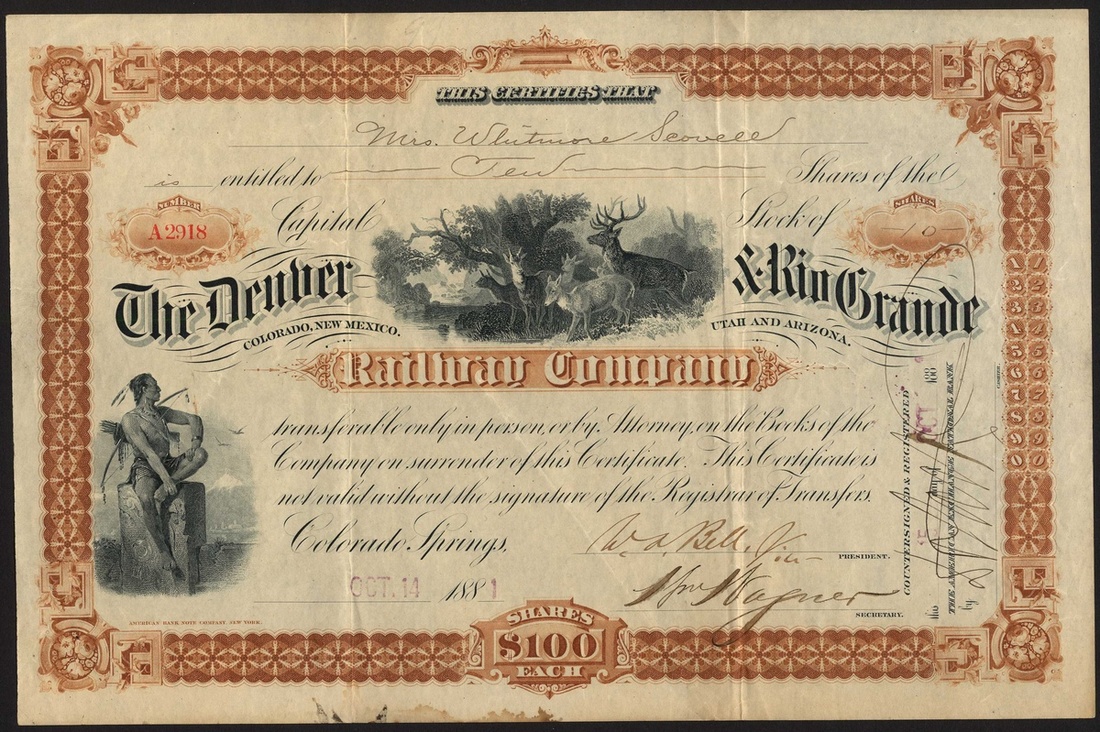 THIS CERTIFIES THAT
Mrs. Whitmore Scovell
is entitled to Ten Shares of the
NUMBER
A2918
Capital Stock of
SHARES
10
The Denver & Rio Grande
COLORADO, NEW MEXICO. UTAH AND ARIZONA.
Railway Company
transferable only in person, or by Attorney, on the Books of the
Company on surrender of this Certificate. This Certificate is
not valid without the signature of the Registrar of Transfers.
Colorado Springs,
W. A. Bell, PRESIDENT.
OCT. 14 1881
Wm Wagner
SECRETARY.
AMERICAN BANK NOTE COMPANY, NEW YORK.
SHARES
$100
EACH
COUNTERSIGNED & REGISTERED
this day of 188
THE AMERICAN EXCHANGE NATIONAL BANK
by
1 1
2 2
3 3
4 4
5 5
6 6
7 7
8 8
9 9
0 0